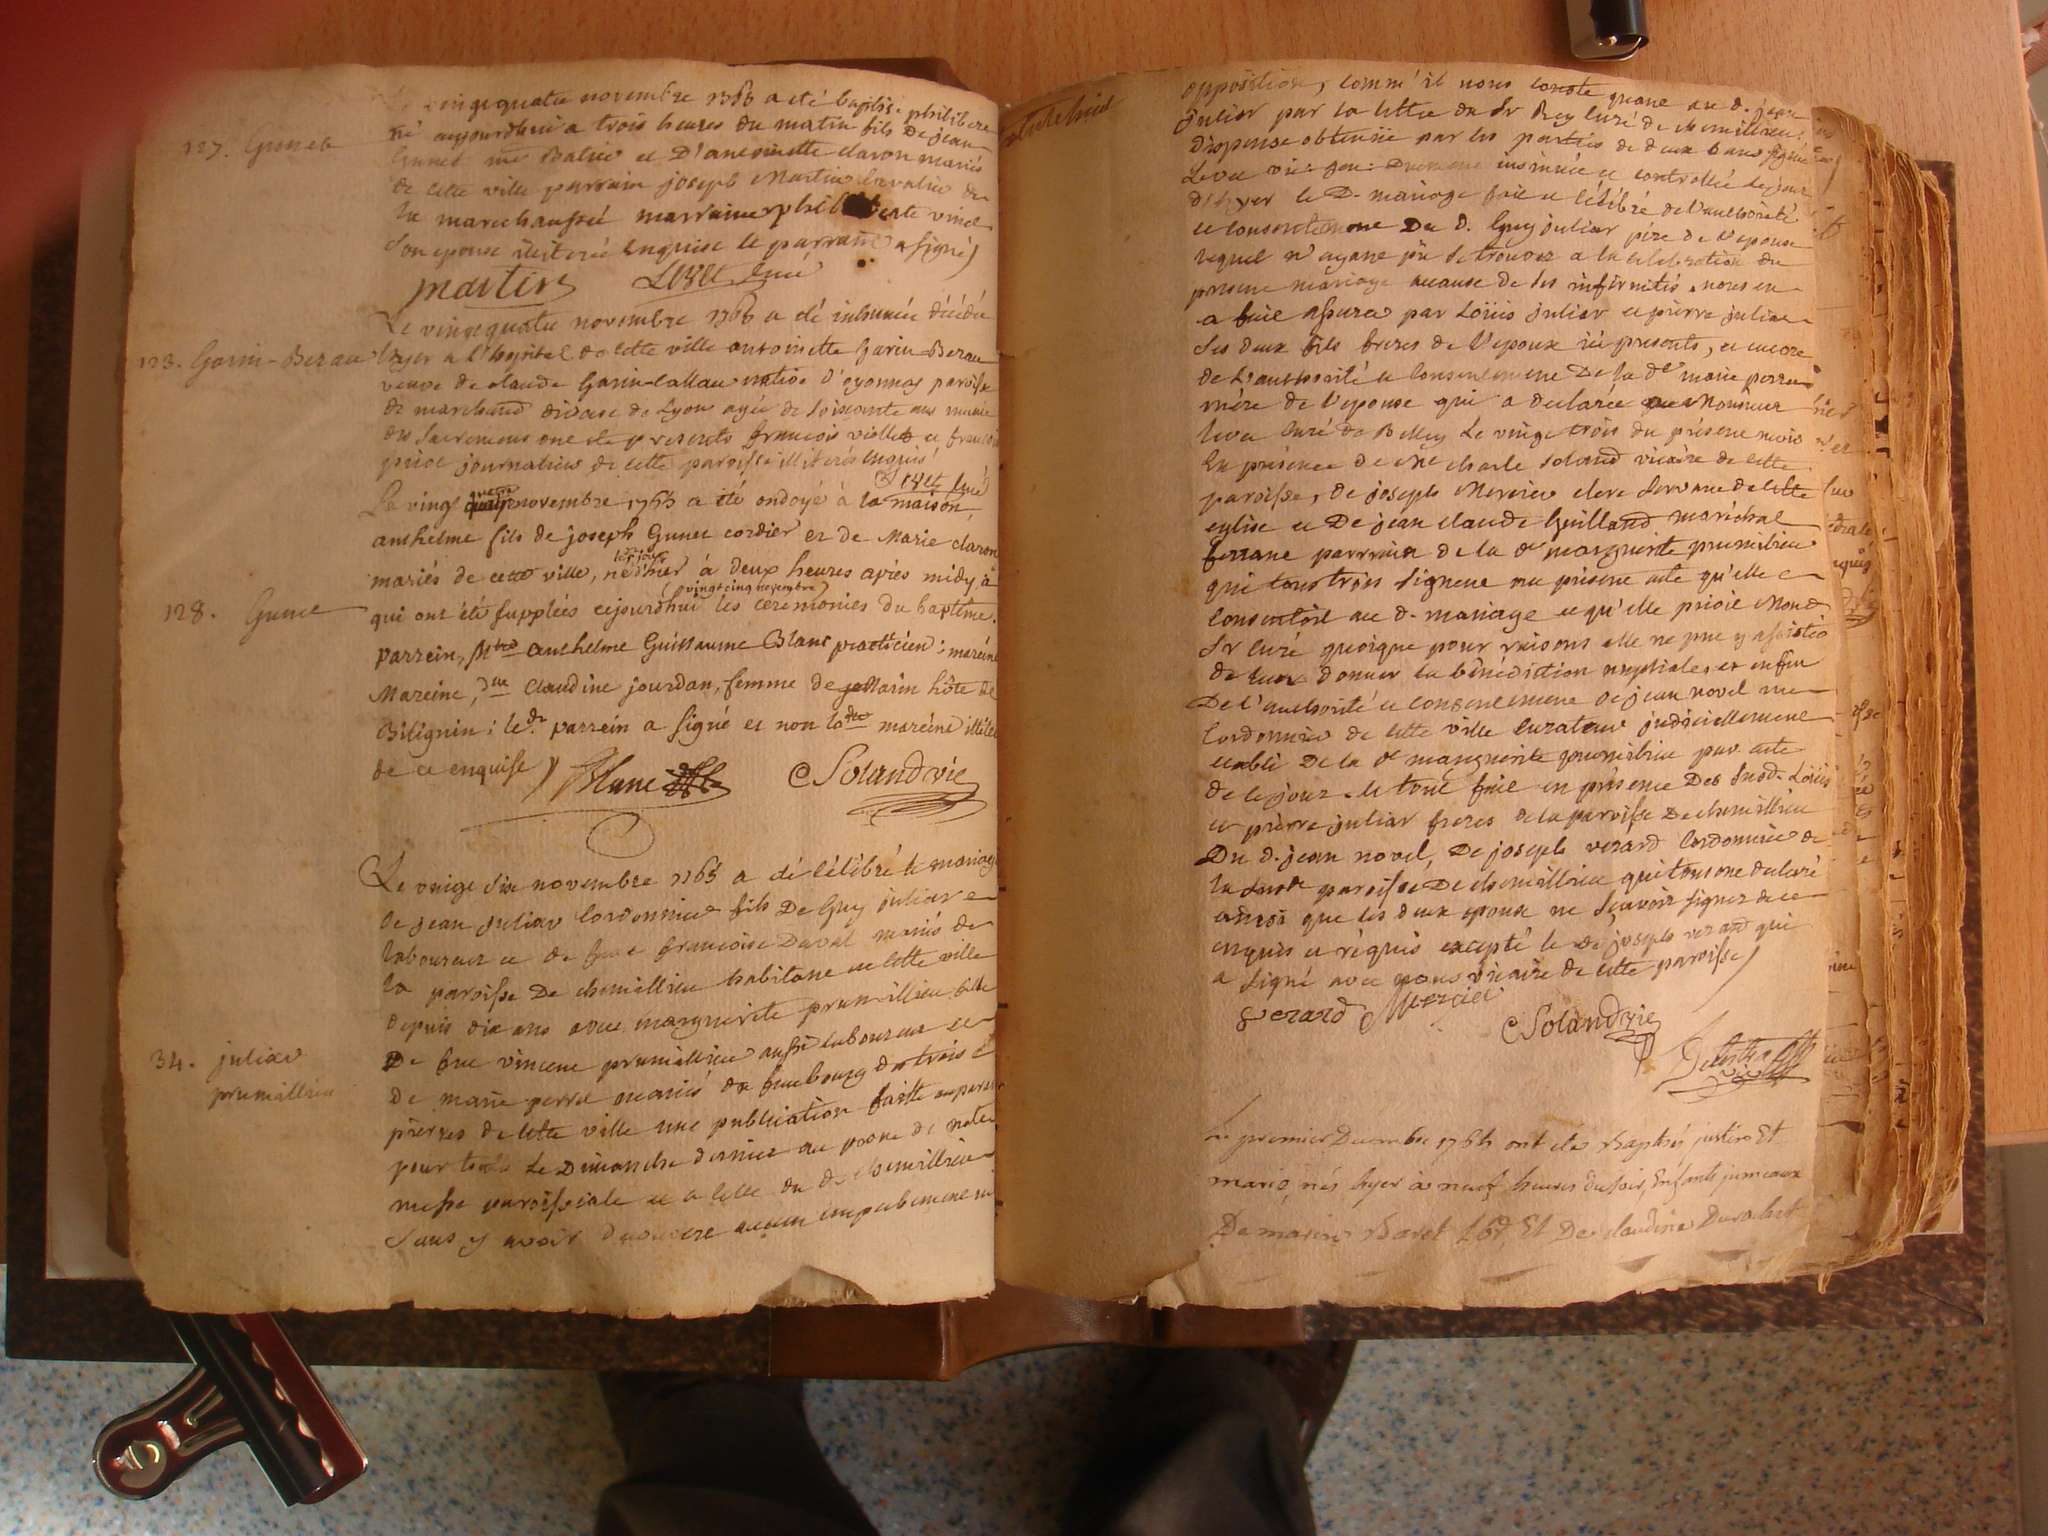 vingtquatre novembre 1765 a eté baptisé philibert
né aujourdhui a trois heures du matin fils De jean
127. Gunet
Gunet me Batier et D'antoinette claron mariés
de cette ville parrain joseph Martin Cavalier de
la marechaussée marraine philiberte vinet
son epouse illiterée Enquise le parrain a signé
martin curé
Le vingtquatre novembre 1765 a eté inhumée décédée
123. Garin-Berau
hyer a l'hopital de cette ville antoinette Garin-Berau
veuve de claude Garin-Callau native d'oyonnas paroisse
de marchand diocese de Lyon agée de soixante ans munie
des sacremens ont eté presents francois viollet et
journalier de cette paroisse illiterés enquis
curé
Le vingt quatre novembre 1765 a été ondoyé à la maison,
anthelme fils de joseph Gunet cordier et de Marie claron
mariés de cette ville, né à deux heures après midy à
(vingtcinq novembre)
128. Gunet
qui ont été supplées cejourdhui les ceremonies du baptême.
parrein, anthelme Guillaume Blanc practicien;
Mareine, dlle Claudine jourdan, femme de Marin hôte de
Bilignin; le dt parrein a signé et non la dte mareine
de ce enquise
Blanc Soland vic
Le vingt six novembre 1765 a eté célébré le mariage
de jean juliar cordonnier fils De Guy juliar
laboureur et de feue francoise Duval mariés de
la paroisse De chemillieu habitant en cette ville
depuis dix ans avec marguerite prumillieu fille
34. juliar
prumillieu
De feu vincent prumillieu aussi laboureur et
De marie perret mariés du fauxbourg des trois
pierres de cette ville une publication faitte
pour toutes Le Dimanche dernier au prone de notre
messe paroissiale et a celle du d. chemillieu
sans y avoir decouvert aucun empechement ni
opposition, comme il nous conste quant au d. jean
juliar par la lettre du Sr Rey curé de chemillieu,
dispense obtenüe par les parties de deux bans signée
Levet vic: gen: Duement insinuée et controllée le jour
d'hyer le D. mariage fait et célébré de l'authorité
et consentement Du d. Guy juliar père de l'epoux
lequel n'ayant pü se trouver a la celebration du
present mariage acause de ses infirmités nous en
a fait assurer par Loüis juliar et pierre juliar
ses deux fils freres de l'epoux ici presents, et encore
de l'authorité et consentement De la de marie perret
mère de l'epouse qui a declarée a Monsieur
curé de Belley le vingt trois du présent mois
En présence de me charle soland vicaire de cette
paroisse, de joseph Mercier clerc servant de cette
eglise et De jean claude Guilland maréchal
ferrant parrain de la de marguerite prumillieu
qui tous trois signent au présent acte qu'elle
consentoit au d. mariage et qu'elle prioit Mond
Sr curé quoique pour raisons elle ne put y assister
de leur donner la bénédiction nuptiale, et enfin
De l'authorité et consentement de jean novel me
cordonnier de cette ville curateur judiciellement
etabli De la de marguerite prumillieu par acte
de ce jour le tout fait en présence Des susd. Loüis
et pierre juliar freres de la paroisse De chemillieu
Du d. jean novel, De joseph verard cordonnier de
la susde paroisse De chemillieu qui tous ont declaré
ainsi que les deux epoux ne sçavoir signer de ce
enquis et requis excepté le de joseph verard qui
a signé avec nous vicaire de cette paroisse
verard Mercier
Soland vic
Le premier Decembre 1765 ont etés Baptisés justine Et
marie, nés hyer à neuf heures du soir, Enfants jumeaux
De marin Et De claudine